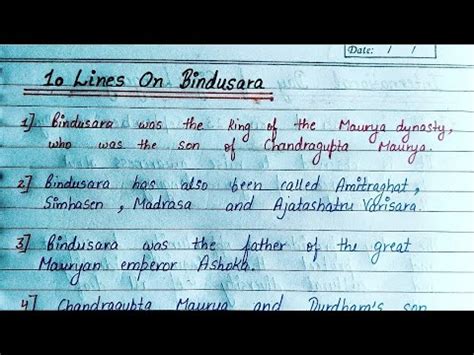 Date: / /
10 Lines On Bindusara
1] Bindusara was the king of the Maurya dynasty,
who was the son of Chandragupta Maurya.
2] Bindusara has also been called Amitraghat,
Simhasen, Madrasa and Ajatashatru Varisara.
3] Bindusara was the father of the great
Mauryan emperor Ashoka.
4] Chandragupta Maurya and Durdhara's son